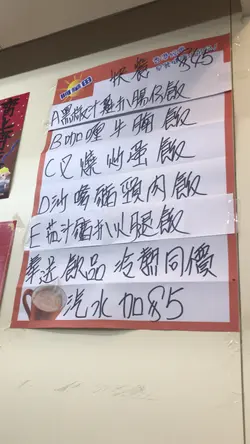 快餐
A黑椒汁雞扒腸仔飯
B咖喱牛腩飯
C叉燒炒蛋飯
D沙嗲豬頸肉飯
E茄汁豬扒火腿飯
奉送飲品 冷熱同價
汽水加$5